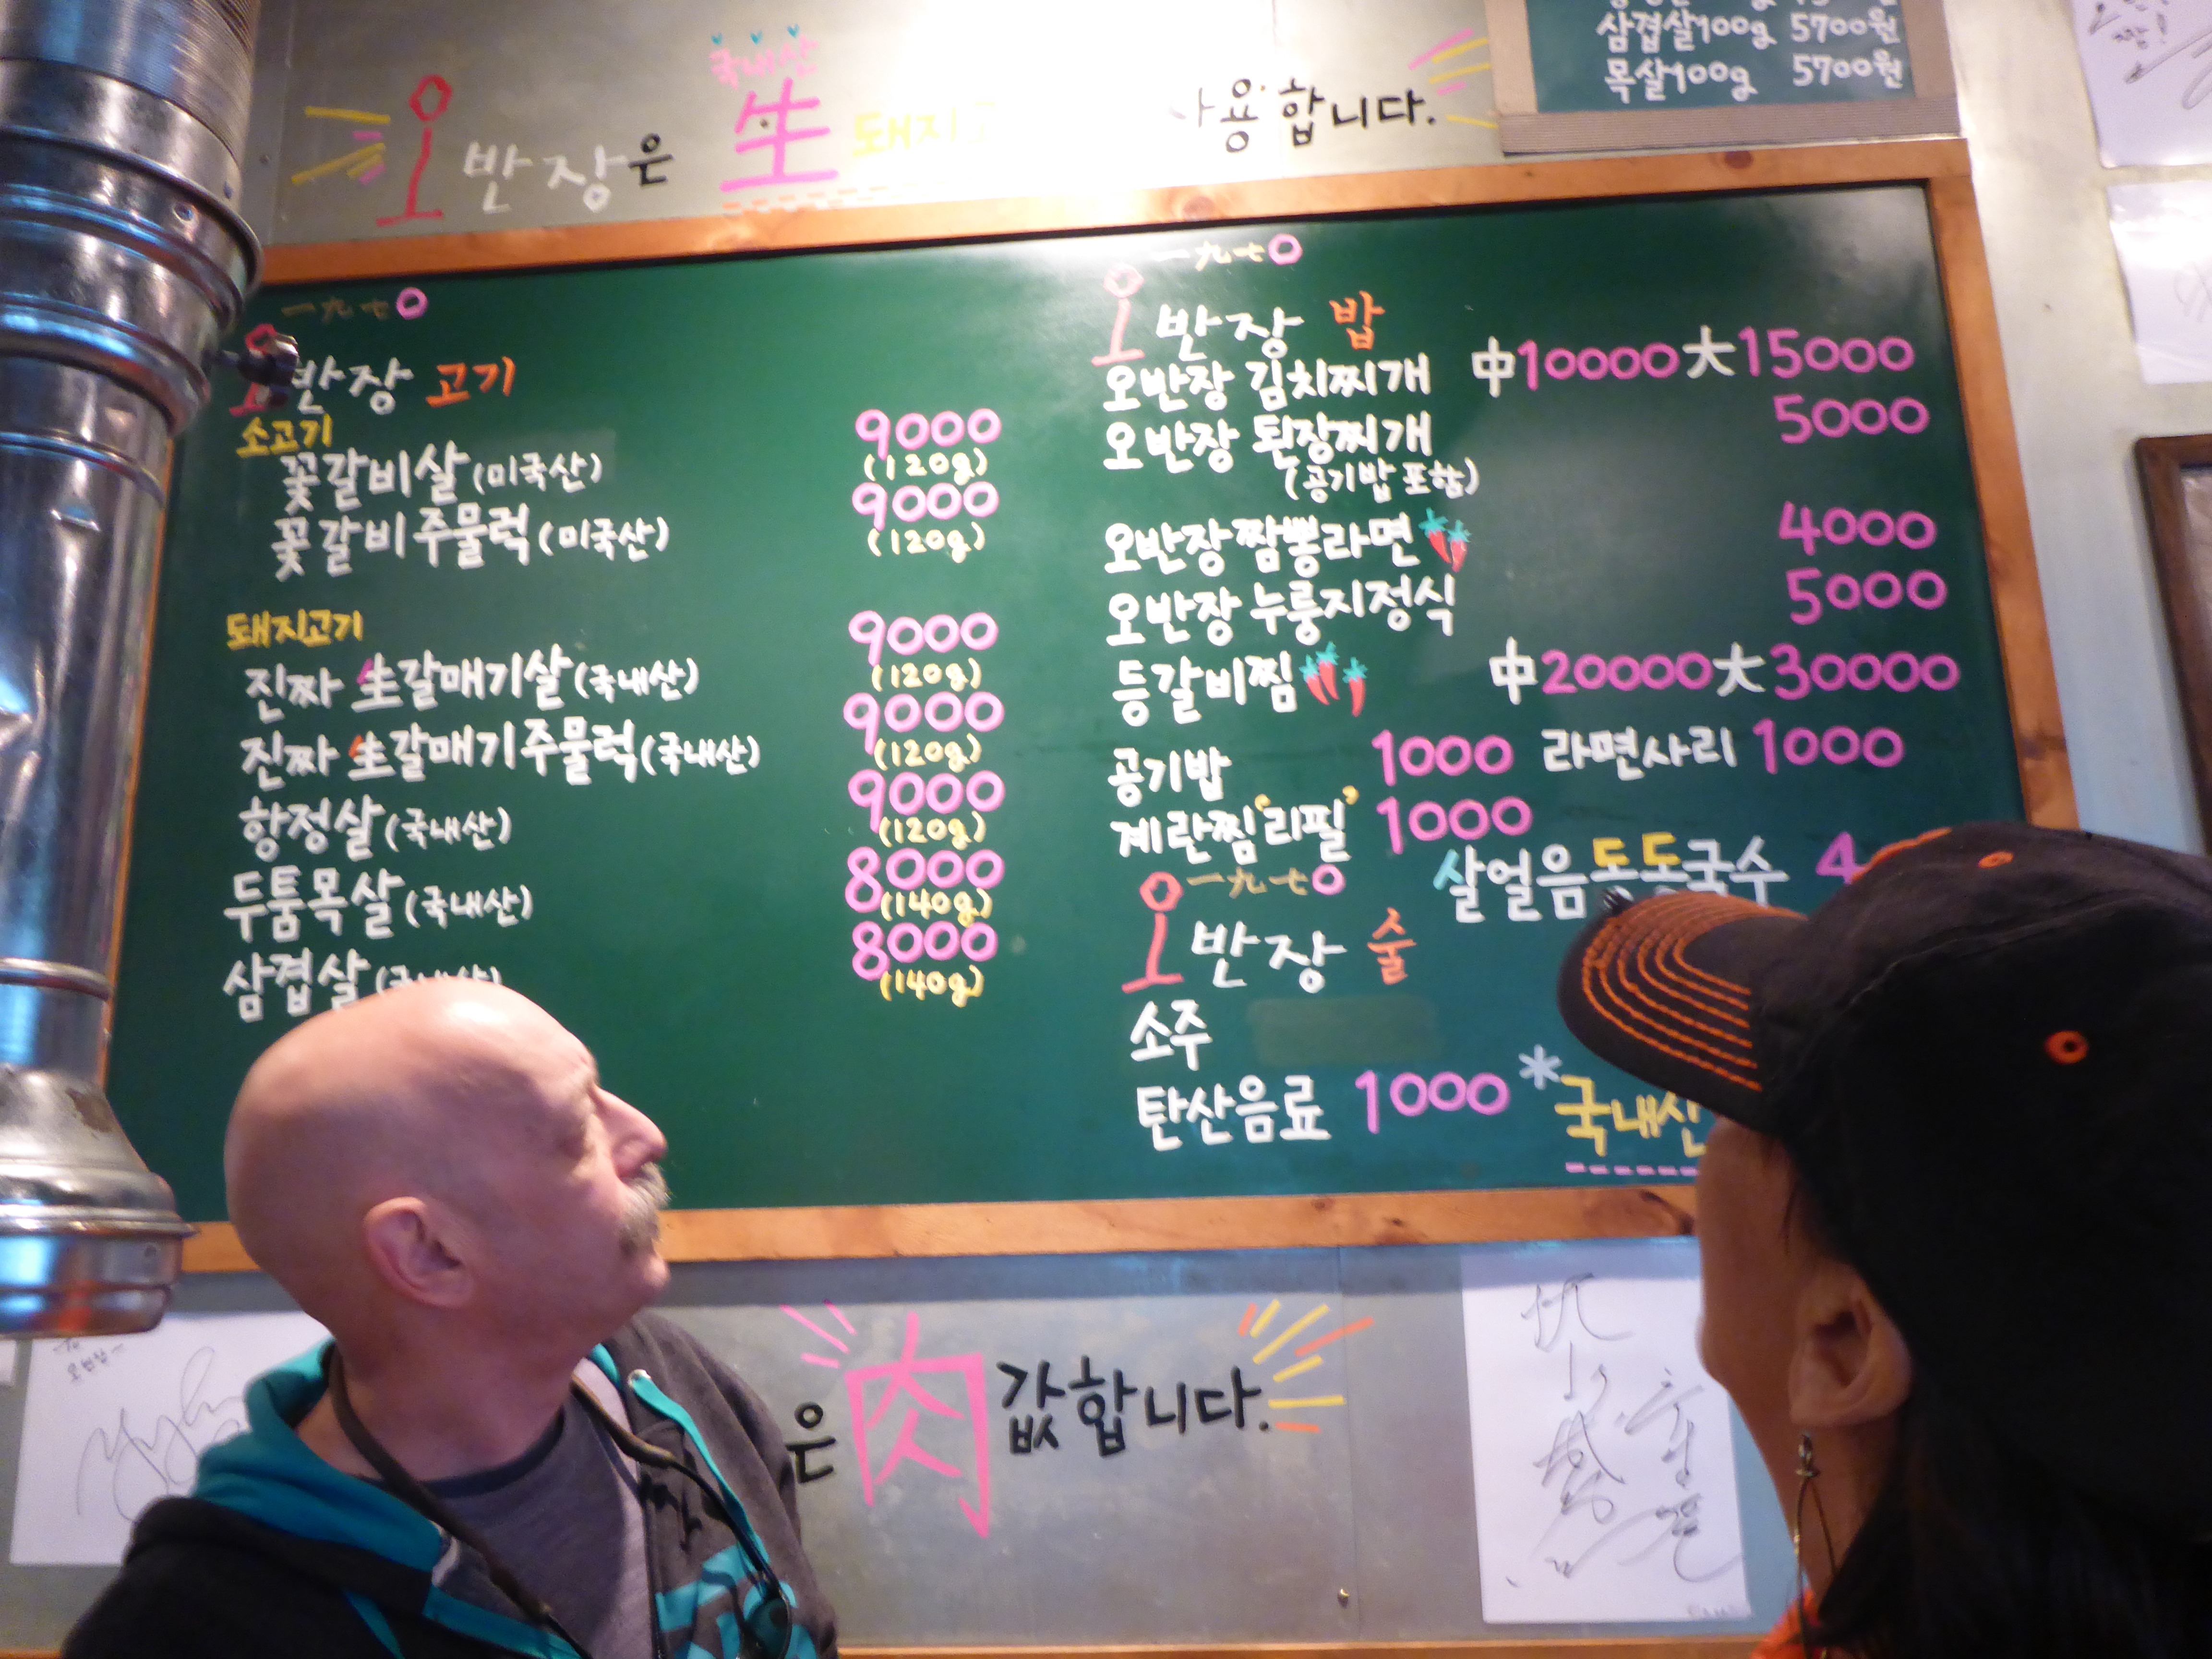 국내산
오반장은 生 돼지 사용합니다.
삼겹살100g 5700원
목살100g 5700원
一九七0
오반장 고기
소고기
꽃갈비살(미국산) 9000
(120g)
꽃갈비주물럭(미국산) 9000
(120g)
돼지고기
진짜 生갈매기살(국내산) 9000
(120g)
진짜 生갈매기주물럭(국내산) 9000
(120g)
항정살(국내산) 9000
(120g)
두툼목살(국내산) 8000
(140g)
삼겹살(국내산) 8000
(140g)
一九七0
오반장 밥
오반장 김치찌개 中10000大15000
오반장 된장찌개 5000
(공기밥 포함)
오반장짬뽕라면 4000
오반장 누룽지정식 5000
등갈비찜 中20000大30000
공기밥 1000 라면사리 1000
계란찜'리필' 1000
살얼음동동국수 4
一九七0
오반장 술
소주
탄산음료 1000
*국내산
은 肉 값합니다.
오반장